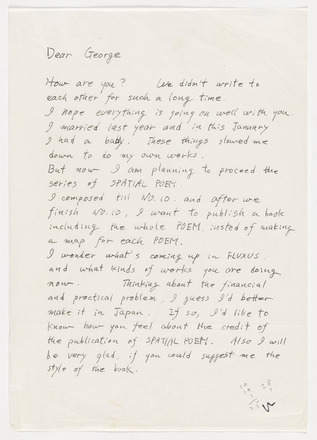 Dear George
How are you? We didn't write to
each other for such a long time.
I hope everything is going on well with you.
I married last year and in this January
I had a baby. These things slowed me
down to do my own works.
But now I am planning to proceed the
series of SPATIAL POEM.
I composed till NO.10. and after we
finish NO.10, I want to publish a book
including the whole POEM, insted of making
a map for each POEM.
I wonder what's coming up in FLUXUS.
and what kinds of works you are doing
now. Thinking about the financial
and practical problem, I guess I'd better
make it in Japan. If so, I'd like to
know how you feel about the credit of
the publication of SPATIAL POEM. Also I will
be very glad, if you could suggest me the
style of the book.